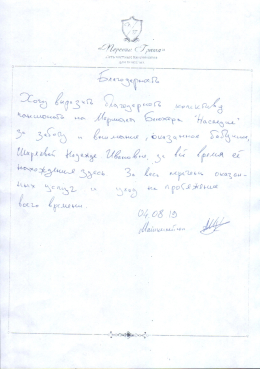 Благодарность
Хочу выразить благодарность коллективу
пансионата на Маршала Блюхера "Наследие"
за заботу и внимание, оказанное бабушке,
Надежде Ивановне, за всё время её
нахождения здесь. За весь перечень оказан-
ных услуг и уход на протяжении
всего времени.
04.08.19